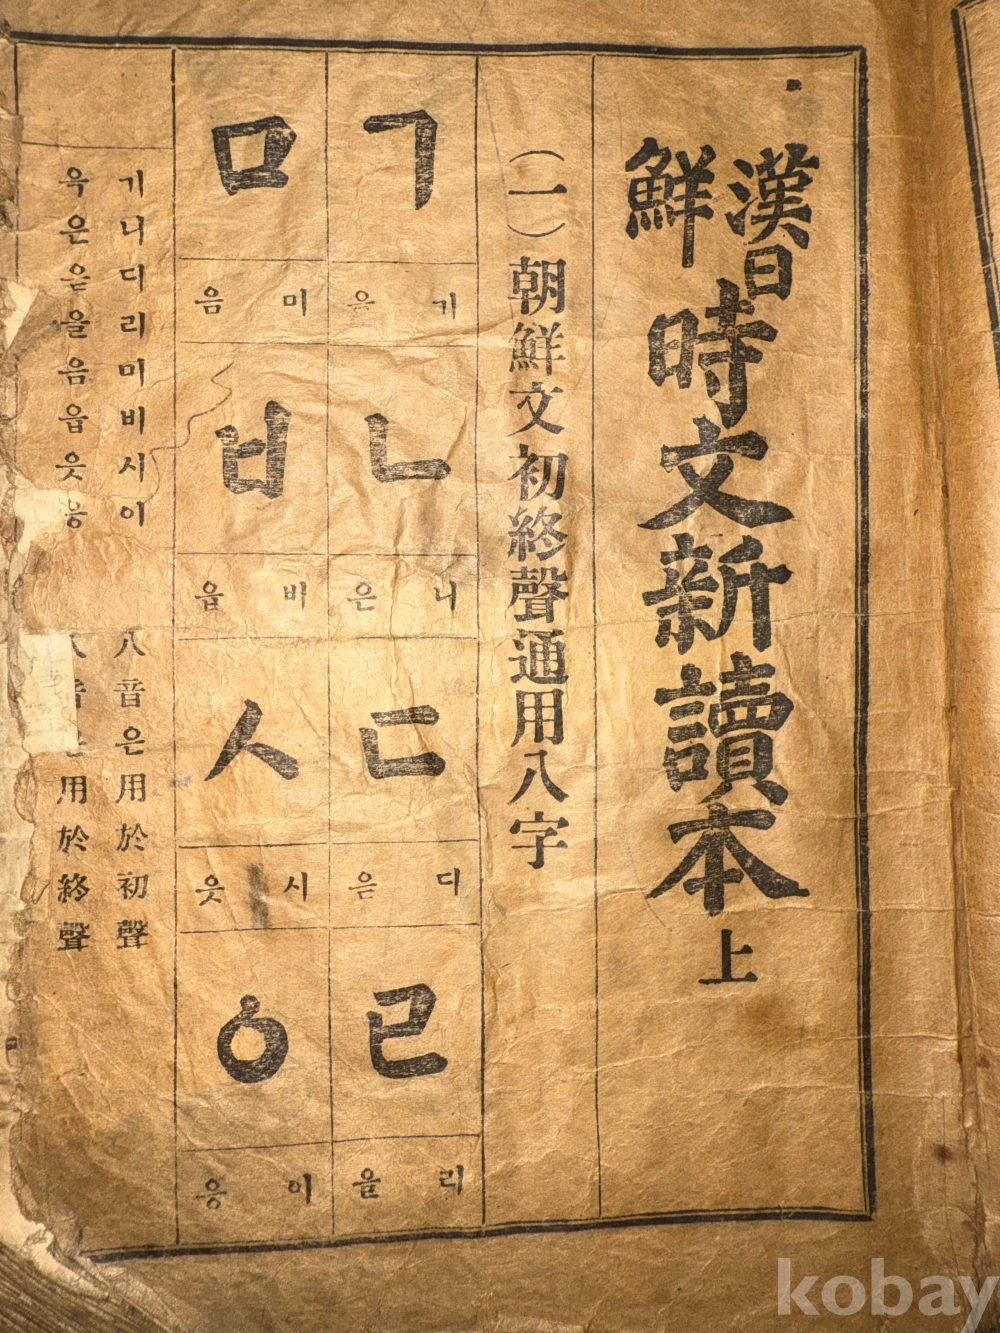 漢日
鮮
時文新讀本 上
(一)朝鮮文初終聲通用八字
ㄱ
기 윽
ㄴ
니 은
ㄷ
디 읃
ㄹ
리 을
ㅁ
미 음
ㅂ
비 읍
ㅅ
시 읏
ㅇ
이 응
기니디리미비시이 八音은用於初聲
윽은읃을음읍읏응 八音은用於終聲
kobay